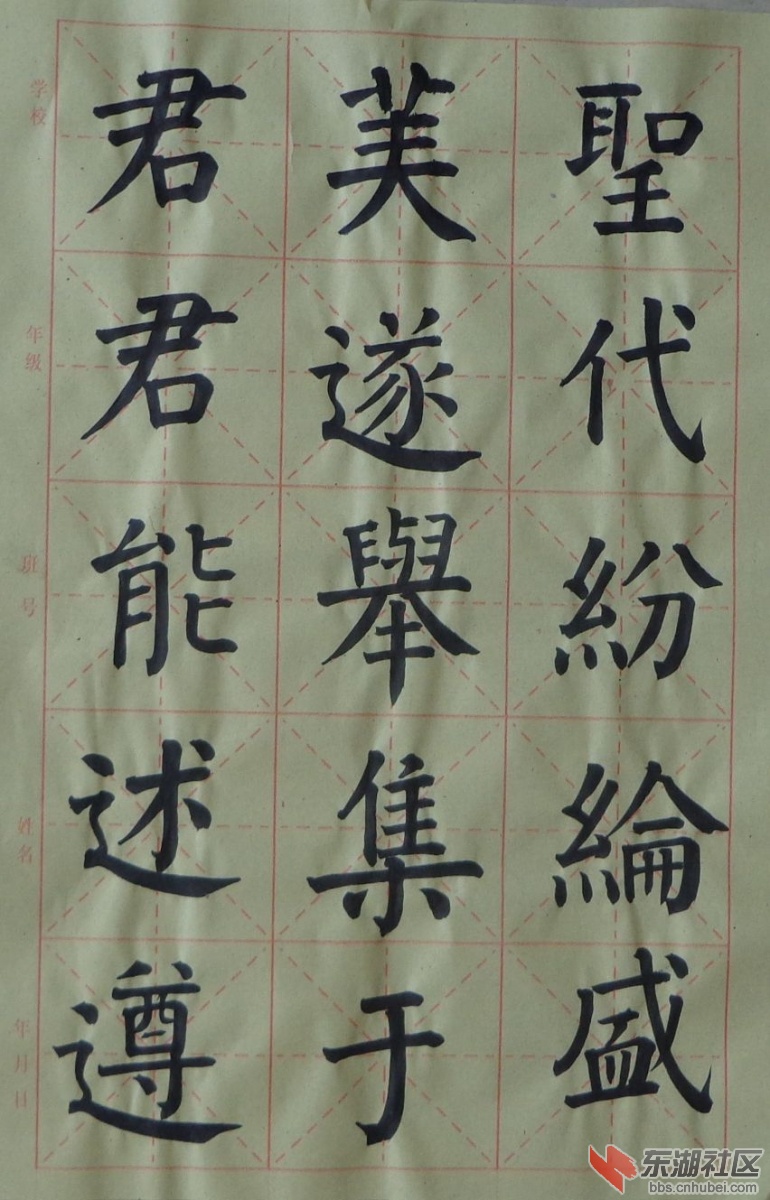 聖代紛綸盛
美遂舉集于
君君能述遵
学校
年级
班号
姓名
年月日
东湖社区
bbs.cnhubei.com